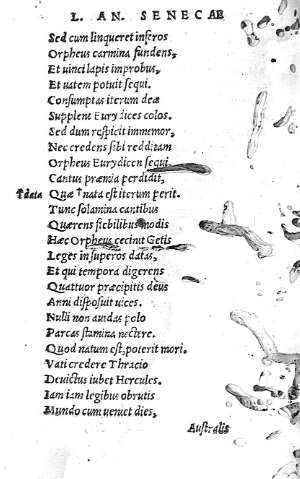 L. AN. SENECAE
Sed cum linqueret inferos
Orpheus carmina fundens,
Et uinci lapis improbus,
Et uatem potuit sequi.
Consumptas iterum deæ
Supplent Eurydices colos.
Sed dum respicit immemor,
Nec credens sibi redditam
Orpheus Eurydicen sequi,
Cantus præmia perdidit,
†data Quæ †nata est iterum perit.
Tunc solamina cantibus
Quærens flebilibus modis
Hæc Orpheus cecinit Getis
Leges in superos datas,
Et qui tempora digerens
Quattuor præcipitis deus
Anni disposuit uices.
Nulli non auidas polo
Parcas stamina nectere.
Quod natum est, poterit mori.
Vati credere Thracio
Deuictus iubet Hercules.
Iam iam legibus obrutis
Mundo cum ueniet dies,
Australis